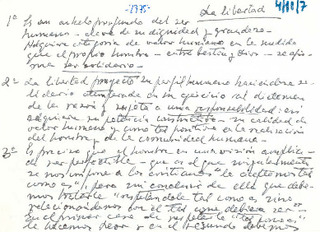 -1975-
La libertad
4/80/7
1º Es un anhelo profundo del ser
humano - clave de su dignidad y grandeza -
Adquiere categoría de valor humano en la medida
que el propio hombre - entre bestia y dios - se afir-
ma ser solidario -
2º - La libertad proyecta su perfil humano haciéndose so-
lidaria atemperada en su ejercicio al dictamen
de la razón y sujeta a una responsabilidad: así
adquiere su potencia constructiva - su calidad de
valor humano y como tal positivo en la realización
del hombre y de la comunidad humana -
3º - Es preciso que el hombre en una visión amplia -
de ser perfectible - que es el que singularmente
se nos impone a los cristianos "le aceptemos tal
como es", para mi concluir de ello que debe-
mos tratarle "respetándole tal como es" sino
relacionándonos con él "tal como debiera ser" -
En el primer caso de respetarle "tal como es"
le hacemos peor y en el segundo debemos